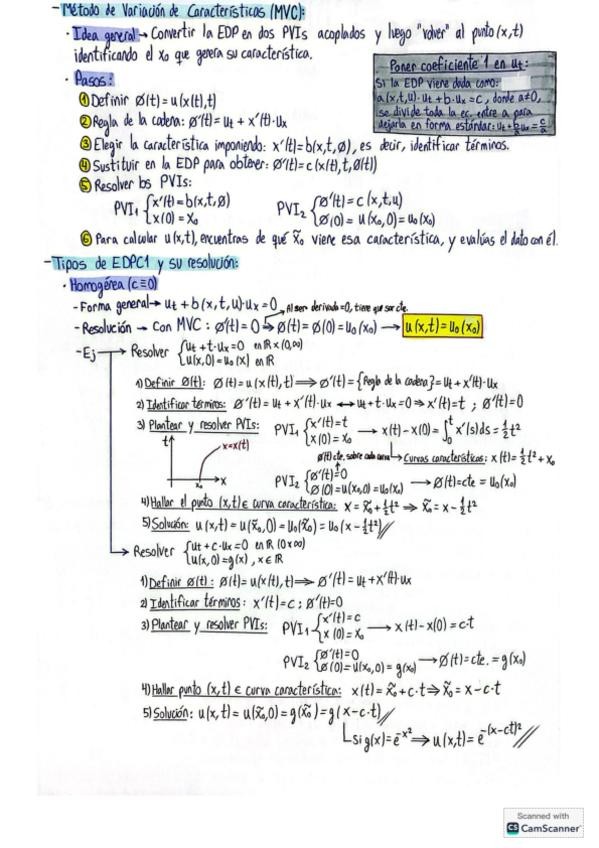 - Método de Variación de Características (MVC):
· Idea general → Convertir la EDP en dos PVIs acoplados y luego "volver" al punto (x,t)
identificando el x₀ que genera su característica.
· Pasos:
Poner coeficiente 1 en uₜ:
Si la EDP viene dada como:
a(x,t,u)·uₜ+b·uₓ=c, donde a≠0,
se divide toda la ec. entre a para
dejarla en forma estándar: uₜ+b/a uₓ=c/a
① Definir ∅(t)=u(x(t),t)
② Regla de la cadena: ∅'(t)=uₜ+x'(t)·uₓ
③ Elegir la característica imponiendo: x'(t)=b(x,t,∅), es decir, identificar términos.
④ Sustituir en la EDP para obtener: ∅'(t)=c(x(t),t,∅(t))
⑤ Resolver los PVIs:
PVI₁ { x'(t)=b(x,t,∅) PVI₂ { ∅'(t)=c(x,t,u)
x(0)=x₀ ∅(0)=u(x₀,0)=u₀(x₀)
⑥ Para calcular u(x,t), encuentras de qué x̃₀ viene esa característica, y evalúas el dato con él.
- Tipos de EDPC1 y su resolución:
· Homogénea (c≡0)
- Forma general → uₜ+b(x,t,u)·uₓ=0
Al ser derivada=0, tiene que ser cte.
- Resolución → Con MVC: ∅'(t)=0 → ∅(t)=∅(0)=u₀(x₀) → u(x,t)=u₀(x₀)
- Ej → Resolver { uₜ+t·uₓ=0 en ℝ×(0,∞)
u(x,0)=u₀(x) en ℝ
1) Definir ∅(t): ∅(t)=u(x(t),t) ⟹ ∅'(t)={Regla de la cadena}=uₜ+x'(t)·uₓ
2) Identificar términos: ∅'(t)=uₜ+x'(t)·uₓ ↔ uₜ+t·uₓ=0 ⇒ x'(t)=t ; ∅'(t)=0
3) Plantear y resolver PVIs: PVI₁ { x'(t)=t → x(t)-x(0)=∫₀ᵗ x'(s)ds=½t²
x(0)=x₀
t x=x(t) x₀ x
∅(t) cte. sobre cada curva
Curvas características: x(t)=½t²+x₀
PVI₂ { ∅'(t)=0 → ∅(t)=cte=u₀(x₀)
∅(0)=u(x₀,0)=u₀(x₀)
4) Hallar el punto (x,t)∈ curva característica: x=x̃₀+½t² ⇒ x̃₀=x-½t²
5) Solución: u(x,t)=u(x̃₀,0)=u₀(x̃₀)=u₀(x-½t²)//
→ Resolver { uₜ+c·uₓ=0 en ℝ(0×∞)
u(x,0)=g(x), x∈ℝ
1) Definir ∅(t): ∅(t)=u(x(t),t) ⟹ ∅'(t)=uₜ+x'(t)·uₓ
2) Identificar términos: x'(t)=c ; ∅'(t)=0
3) Plantear y resolver PVIs: PVI₁ { x'(t)=c → x(t)-x(0)=c·t
x(0)=x₀
PVI₂ { ∅'(t)=0 → ∅(t)=cte.=g(x₀)
∅(0)=u(x₀,0)=g(x₀)
4) Hallar punto (x,t)∈ curva característica: x(t)=x̃₀+c·t ⇒ x̃₀=x-c·t
5) Solución: u(x,t)=u(x̃₀,0)=g(x̃₀)=g(x-c·t)//
si g(x)=e^-x² ⟹ u(x,t)=e^-(x-ct)²//
Scanned with
CS CamScanner